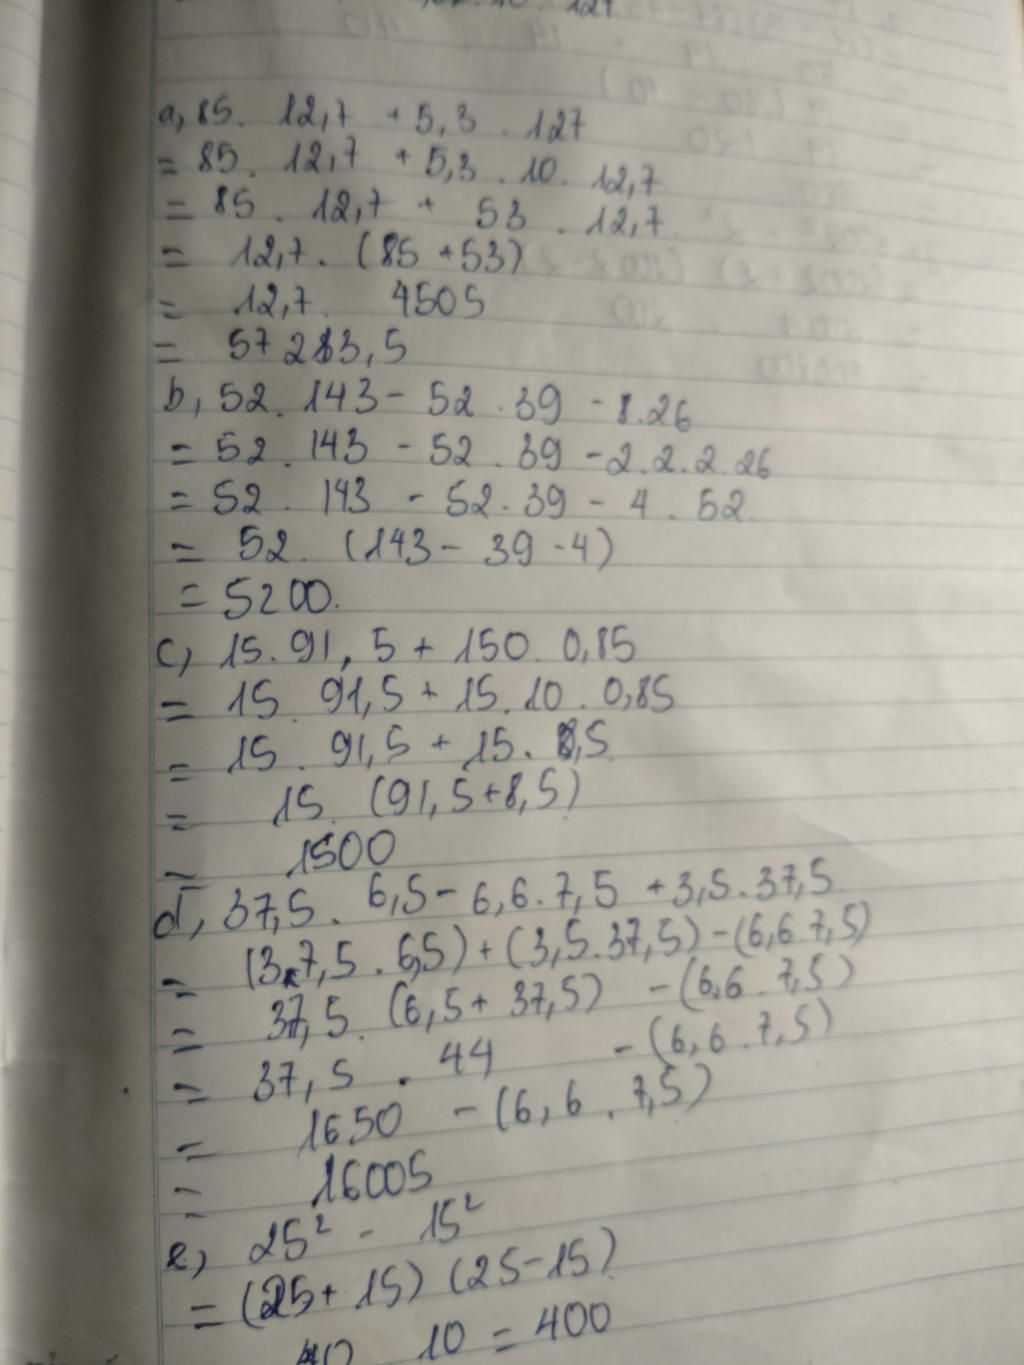 127
a, 85. 12,7 + 5,3 . 127
= 85. 12,7 + 5,3 . 10. 12,7
= 85 . 12,7 + 53 . 12,7
= 12,7. (85 +53)
= 12,7. 4505
= 57 213,5
b, 52. 143 - 52 . 39 - 8.26
= 52. 143 - 52 . 39 - 2.2.2.26
= 52. 143 - 52.39 - 4 . 52
= 52. (143 - 39 - 4)
= 5200.
c, 15.91,5 + 150. 0,85
= 15. 91,5 + 15.10 . 0,85
= 15. 91,5 + 15. 8,5
= 15. (91,5+8,5)
= 1500
d, 37,5. 6,5 - 6,6.7,5 + 3,5.37,5
= (3.7,5.6,5) + (3,5.37,5) - (6,6.7,5)
= 37,5. (6,5 + 37,5) - (6,6.7,5)
= 37,5 . 44 - (6,6.7,5)
= 1650 - (6,6.7,5)
= 16005
e, 25² - 15²
= (25+ 15) (25-15)
40 10 = 400